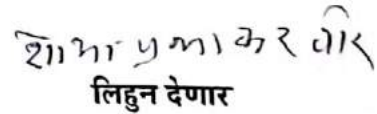 शोभा प्रभाकर वीर
लिहुन देणार